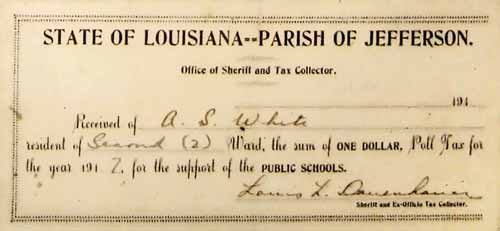 STATE OF LOUISIANA--PARISH OF JEFFERSON.
Office of Sheriff and Tax Collector.
191
Received of A. S. White
resident of Second (2) Ward, the sum of ONE DOLLAR, Poll Tax for
the year 1917 for the support of the PUBLIC SCHOOLS.
Louis L.
Sheriff and Ex-Officio Tax Collector.